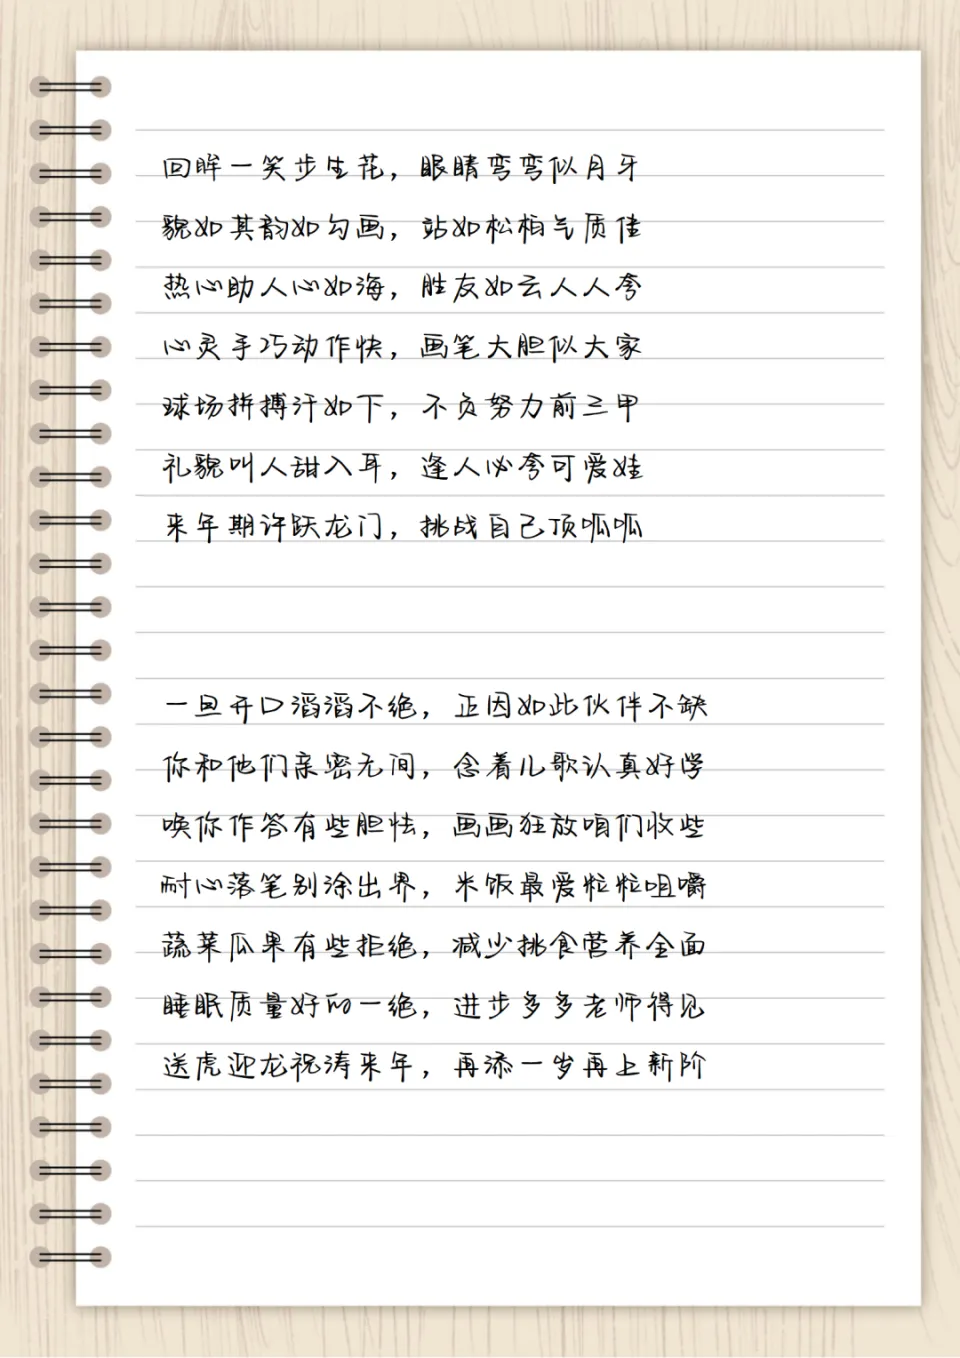 回眸一笑步生花，眼睛弯弯似月牙
貌如其韵如勾画，站如松柏气质佳
热心助人心如海，胜友如云人人夸
心灵手巧动作快，画笔大胆似大家
球场拼搏汗如下，不负努力前三甲
礼貌叫人甜入耳，逢人必夸可爱娃
来年期许跃龙门，挑战自己顶呱呱
一旦开口滔滔不绝，正因如此伙伴不缺
你和他们亲密无间，念着儿歌认真好学
唤你作答有些胆怯，画画狂放咱们收些
耐心落笔别涂出界，米饭最爱粒粒咀嚼
蔬菜瓜果有些拒绝，减少挑食营养全面
睡眠质量好的一绝，进步多多老师得见
送虎迎龙祝涛来年，再添一岁再上新阶